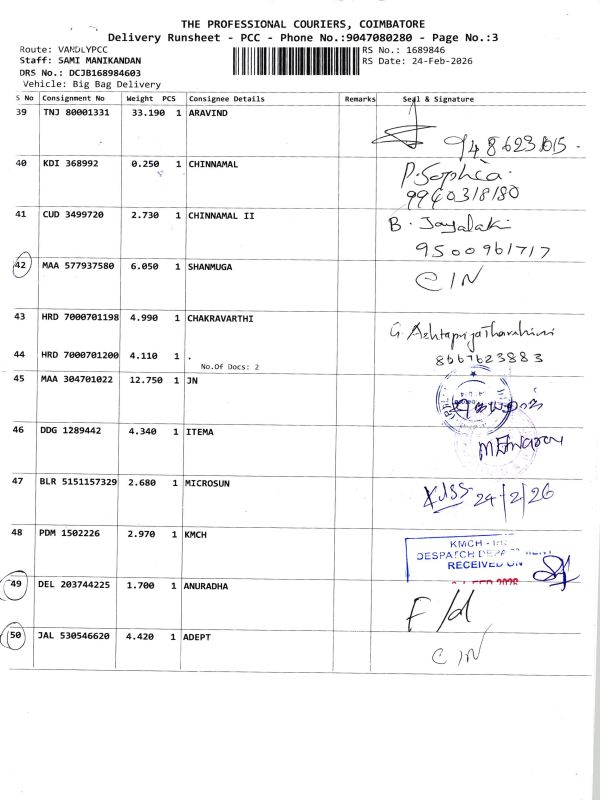 THE PROFESSIONAL COURIERS, COIMBATORE
Delivery Runsheet - PCC - Phone No.:9047080280 - Page No.:3
Route: VANDLYPCC
RS No.: 1689846
Staff: SAMI MANIKANDAN
RS Date: 24-Feb-2026
DRS No.: DCJB168984603
Vehicle: Big Bag Delivery
S No Consignment No Weight PCS Consignee Details Remarks Seal & Signature
39 TNJ 80001331 33.190 1 ARAVIND
40 KDI 368992 0.250 1 CHINNAMAL P. Sophia.
9940318180
41 CUD 3499720 2.730 1 CHINNAMAL II B. Jayalaki
9500961717
42 MAA 577937580 6.050 1 SHANMUGA C/N
43 HRD 7000701198 4.990 1 CHAKRAVARTHI
44 HRD 7000701200 4.110 1 . 8667623883
No.Of Docs: 2
45 MAA 304701022 12.750 1 JN
46 DDG 1289442 4.340 1 ITEMA
47 BLR 5151157329 2.680 1 MICROSUN 24/2/26
48 PDM 1502226 2.970 1 KMCH KMCH -
DESPATCH
RECEIVED ON
FEB 2026
49 DEL 203744225 1.700 1 ANURADHA F/d
50 JAL 530546620 4.420 1 ADEPT C/N